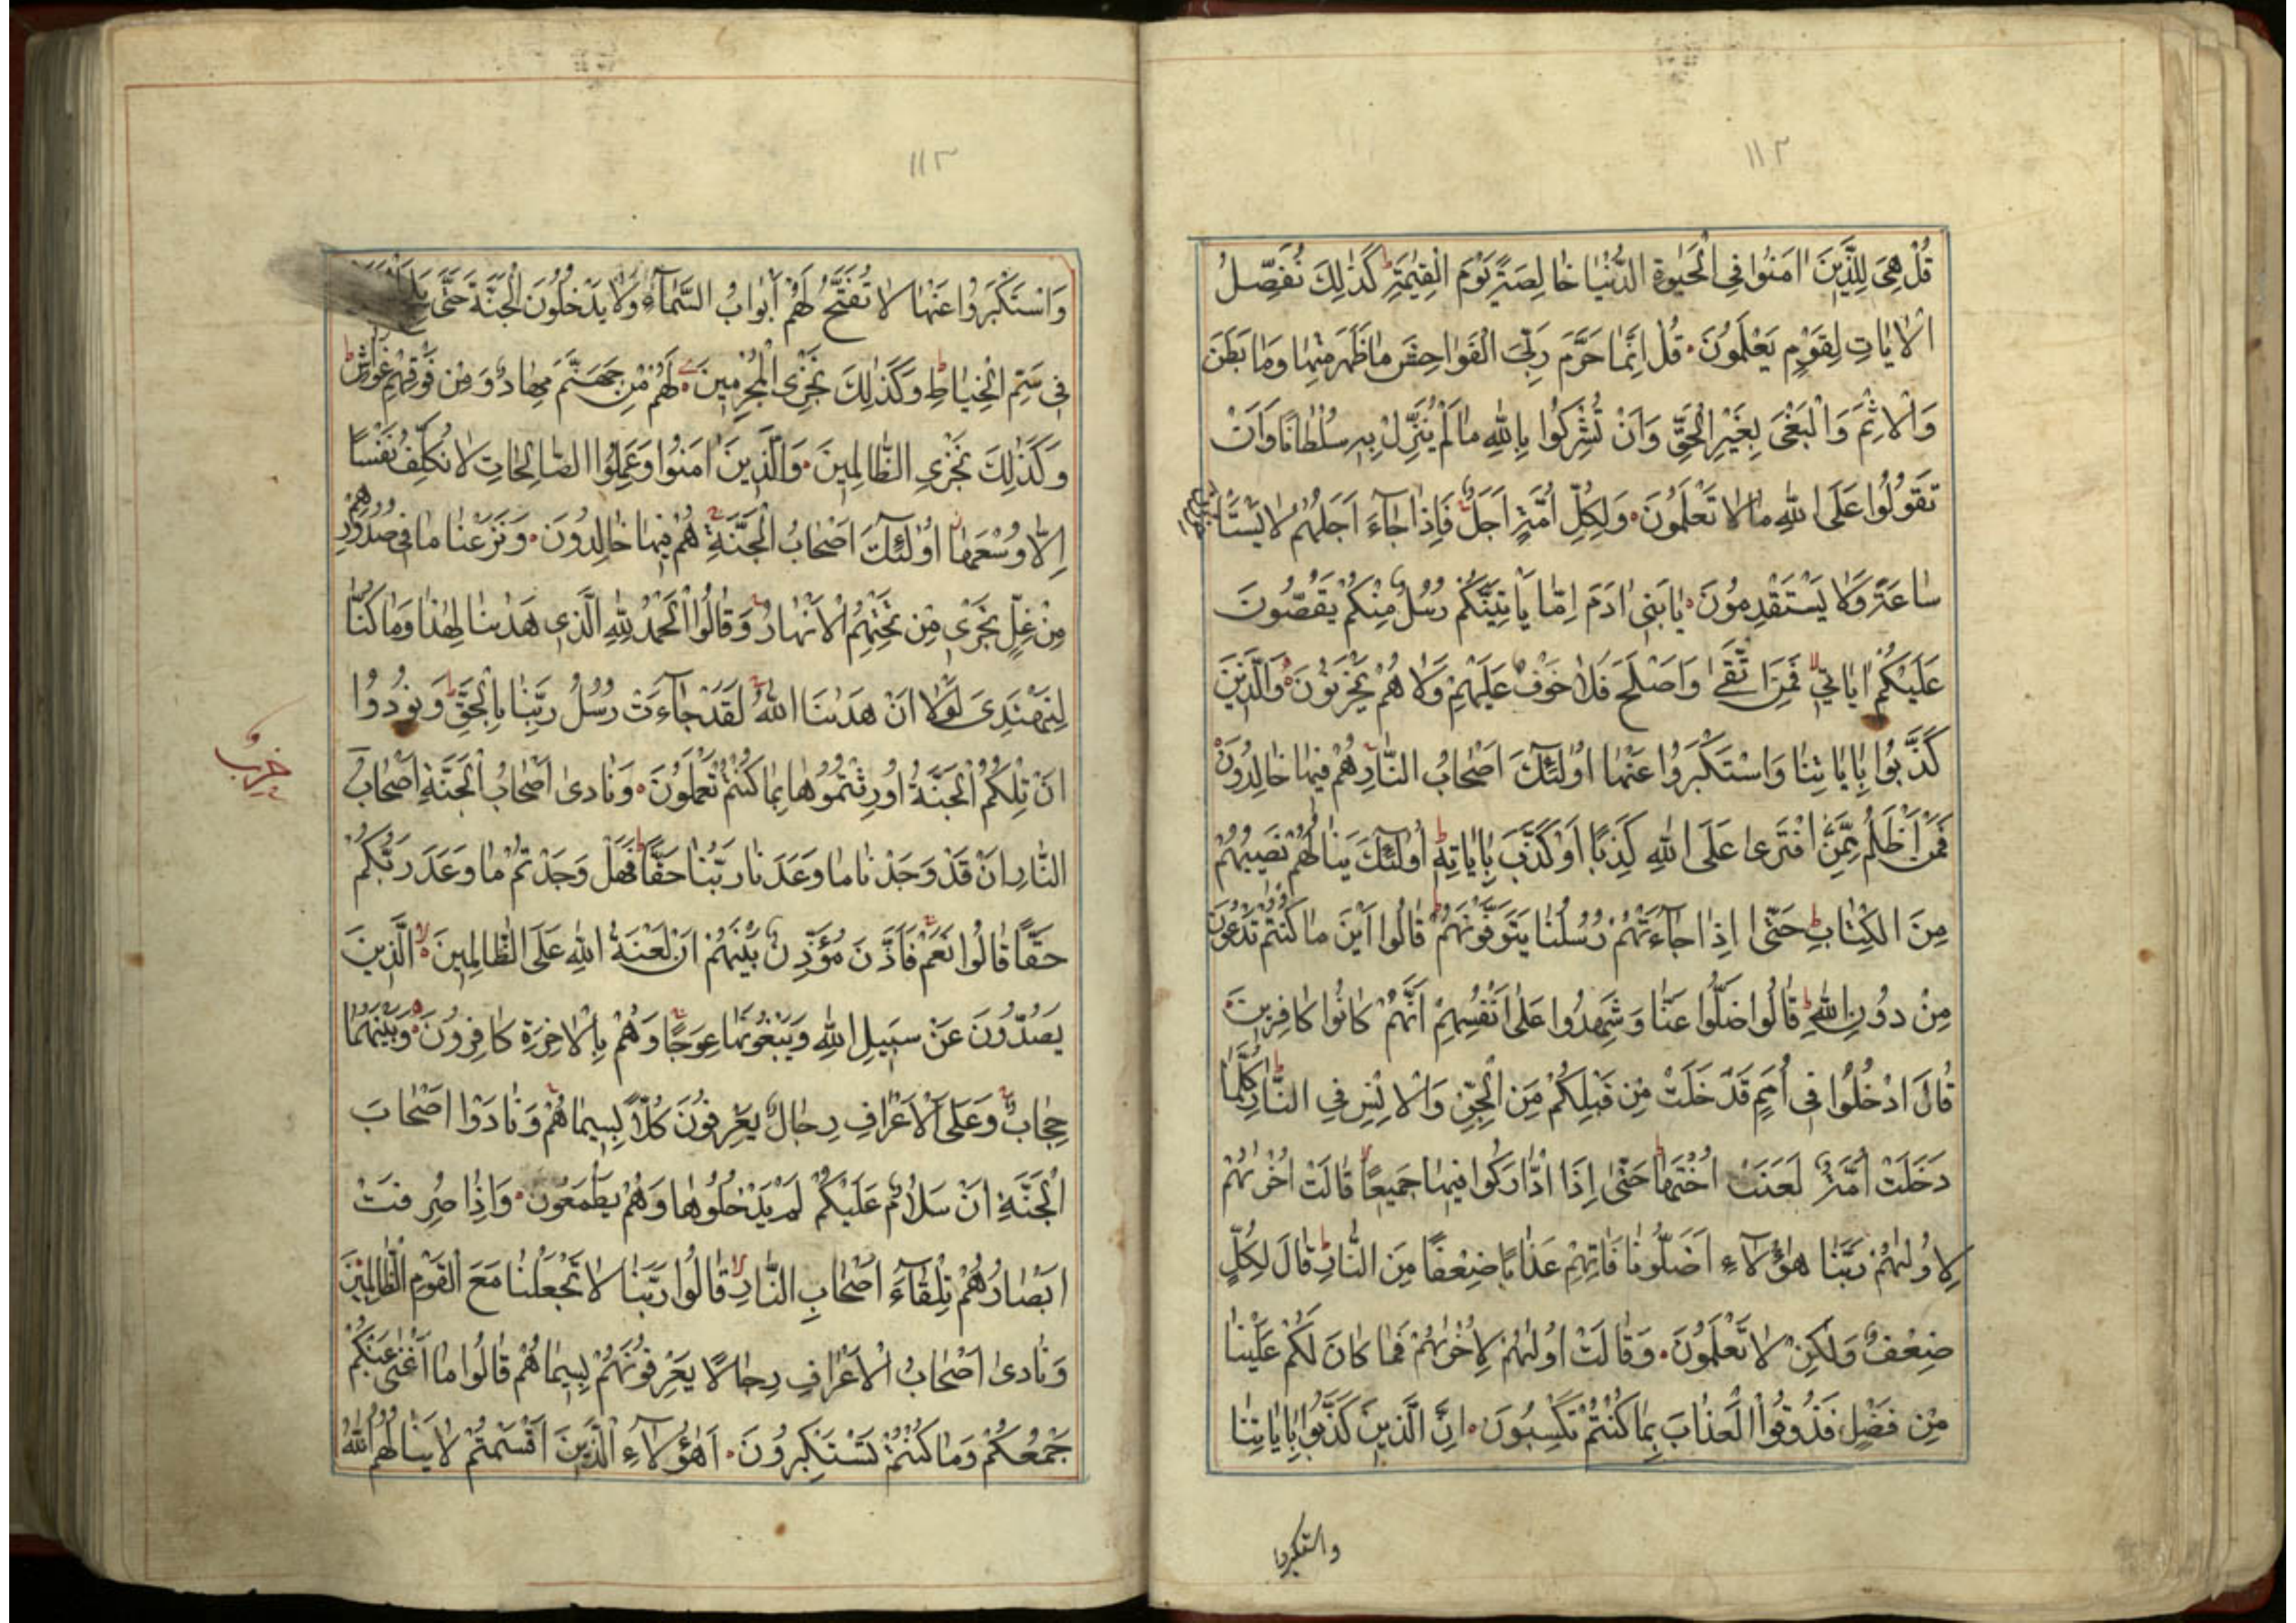 ١١٢
قُلْ هِىَ لِلَّذِينَ اٰمَنُوا فِى الْحَيٰوةِ الدُّنْيَا خَالِصَةً يَوْمَ الْقِيٰمَةِ ط كَذٰلِكَ نُفَصِّلُ
الْاٰيَاتِ لِقَوْمٍ يَعْلَمُونَ قُلْ اِنَّمَا حَرَّمَ رَبِّىَ الْفَوَاحِشَ مَا ظَهَرَ مِنْهَا وَمَا بَطَنَ
وَالْاِثْمَ وَالْبَغْىَ بِغَيْرِ الْحَقِّ وَاَنْ تُشْرِكُوا بِاللّٰهِ مَا لَمْ يُنَزِّلْ بِهِ سُلْطَانًا وَاَنْ
تَقُولُوا عَلَى اللّٰهِ مَا لَا تَعْلَمُونَ وَلِكُلِّ اُمَّةٍ اَجَلٌ فَاِذَا جَٓاءَ اَجَلُهُمْ لَا يَسْتَأْخِرُونَ
سَاعَةً وَلَا يَسْتَقْدِمُونَ يَا بَنِى اٰدَمَ اِمَّا يَأْتِيَنَّكُمْ رُسُلٌ مِنْكُمْ يَقُصُّونَ
عَلَيْكُمْ اٰيَاتِى لا فَمَنِ اتَّقٰى وَاَصْلَحَ فَلَا خَوْفٌ عَلَيْهِمْ وَلَا هُمْ يَحْزَنُونَ وَالَّذِينَ
كَذَّبُوا بِاٰيَاتِنَا وَاسْتَكْبَرُوا عَنْهَا اُولٰٓئِكَ اَصْحَابُ النَّارِ هُمْ فِيهَا خَالِدُونَ
فَمَنْ اَظْلَمُ مِمَّنِ افْتَرٰى عَلَى اللّٰهِ كَذِبًا اَوْ كَذَّبَ بِاٰيَاتِهِ ط اُولٰٓئِكَ يَنَالُهُمْ نَصِيبُهُمْ
مِنَ الْكِتَابِ ط حَتّٰى اِذَا جَٓاءَتْهُمْ رُسُلُنَا يَتَوَفَّوْنَهُمْ قَالُوا اَيْنَ مَا كُنْتُمْ تَدْعُونَ
مِنْ دُونِ اللّٰهِ ط قَالُوا ضَلُّوا عَنَّا وَشَهِدُوا عَلٰى اَنْفُسِهِمْ اَنَّهُمْ كَانُوا كَافِرِينَ
قَالَ ادْخُلُوا فِى اُمَمٍ قَدْ خَلَتْ مِنْ قَبْلِكُمْ مِنَ الْجِنِّ وَالْاِنْسِ فِى النَّارِ ط كُلَّمَا
دَخَلَتْ اُمَّةٌ لَعَنَتْ اُخْتَهَا ط حَتّٰى اِذَا ادَّارَكُوا فِيهَا جَمِيعًا لا قَالَتْ اُخْرٰىهُمْ
لِاُولٰىهُمْ رَبَّنَا هٰٓؤُلَٓاءِ اَضَلُّونَا فَاٰتِهِمْ عَذَابًا ضِعْفًا مِنَ النَّارِ ط قَالَ لِكُلٍّ
ضِعْفٌ وَلٰكِنْ لَا تَعْلَمُونَ وَقَالَتْ اُولٰىهُمْ لِاُخْرٰىهُمْ فَمَا كَانَ لَكُمْ عَلَيْنَا
مِنْ فَضْلٍ فَذُوقُوا الْعَذَابَ بِمَا كُنْتُمْ تَكْسِبُونَ اِنَّ الَّذِينَ كَذَّبُوا بِاٰيَاتِنَا
١١٣
وَاسْتَكْبَرُوا عَنْهَا لَا تُفَتَّحُ لَهُمْ اَبْوَابُ السَّمَٓاءِ وَلَا يَدْخُلُونَ الْجَنَّةَ حَتّٰى
فِى سَمِّ الْخِيَاطِ ط وَكَذٰلِكَ نَجْزِى الْمُجْرِمِينَ لَهُمْ مِنْ جَهَنَّمَ مِهَادٌ وَمِنْ فَوْقِهِمْ غَوَاشٍ ط
وَكَذٰلِكَ نَجْزِى الظَّالِمِينَ وَالَّذِينَ اٰمَنُوا وَعَمِلُوا الصَّالِحَاتِ لَا نُكَلِّفُ نَفْسًا
اِلَّا وُسْعَهَا اُولٰٓئِكَ اَصْحَابُ الْجَنَّةِ هُمْ فِيهَا خَالِدُونَ وَنَزَعْنَا مَا فِى صُدُورِهِمْ
مِنْ غِلٍّ تَجْرِى مِنْ تَحْتِهِمُ الْاَنْهَارُ وَقَالُوا الْحَمْدُ لِلّٰهِ الَّذِى هَدٰينَا لِهٰذَا وَمَا كُنَّا
لِنَهْتَدِىَ لَوْلَا اَنْ هَدٰينَا اللّٰهُ لَقَدْ جَٓاءَتْ رُسُلُ رَبِّنَا بِالْحَقِّ ط وَنُودُوا
اَنْ تِلْكُمُ الْجَنَّةُ اُورِثْتُمُوهَا بِمَا كُنْتُمْ تَعْمَلُونَ وَنَادٰى اَصْحَابُ الْجَنَّةِ اَصْحَابَ
حزب
النَّارِ اَنْ قَدْ وَجَدْنَا مَا وَعَدَنَا رَبُّنَا حَقًّا فَهَلْ وَجَدْتُمْ مَا وَعَدَ رَبُّكُمْ
حَقًّا قَالُوا نَعَمْ فَاَذَّنَ مُؤَذِّنٌ بَيْنَهُمْ اَنْ لَعْنَةُ اللّٰهِ عَلَى الظَّالِمِينَ لا اَلَّذِينَ
يَصُدُّونَ عَنْ سَبِيلِ اللّٰهِ وَيَبْغُونَهَا عِوَجًا وَهُمْ بِالْاٰخِرَةِ كَافِرُونَ وَبَيْنَهُمَا
حِجَابٌ وَعَلَى الْاَعْرَافِ رِجَالٌ يَعْرِفُونَ كُلًّا بِسِيمَاهُمْ وَنَادَوْا اَصْحَابَ
الْجَنَّةِ اَنْ سَلَامٌ عَلَيْكُمْ لَمْ يَدْخُلُوهَا وَهُمْ يَطْمَعُونَ وَاِذَا صُرِفَتْ
اَبْصَارُهُمْ تِلْقَٓاءَ اَصْحَابِ النَّارِ لا قَالُوا رَبَّنَا لَا تَجْعَلْنَا مَعَ الْقَوْمِ الظَّالِمِينَ
وَنَادٰى اَصْحَابُ الْاَعْرَافِ رِجَالًا يَعْرِفُونَهُمْ بِسِيمَاهُمْ قَالُوا مَا اَغْنٰى عَنْكُمْ
جَمْعُكُمْ وَمَا كُنْتُمْ تَسْتَكْبِرُونَ اَهٰٓؤُلَٓاءِ الَّذِينَ اَقْسَمْتُمْ لَا يَنَالُهُمُ اللّٰهُ